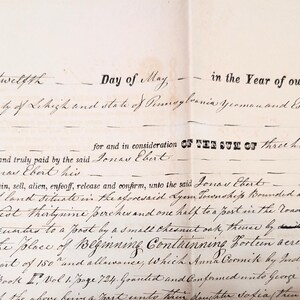 twelfth Day of May in the Year of ou
ty of Lehigh and state of Pennsylvania yeoman and
for and in consideration OF THE SUM OF three h
and truly paid by the said Jonas Ebert
nas Ebert his
in, sell, alien, enfeoff, release and confirm, unto the said Jonas Ebert
land Situate in the aforesaid Lynn Township Bounded a
est Thirtynine perches and one half to a post in the road
quarter to a post by a small chesnut oak, thence by
the place of Beginning Containing Forteen acres
ort of 150 and allowance, which Anna Cormick by Inde
Book E. Vol 1. Page 724. Granted and Confirmed unto George
the above being a Part unto their daughter Sofia, the